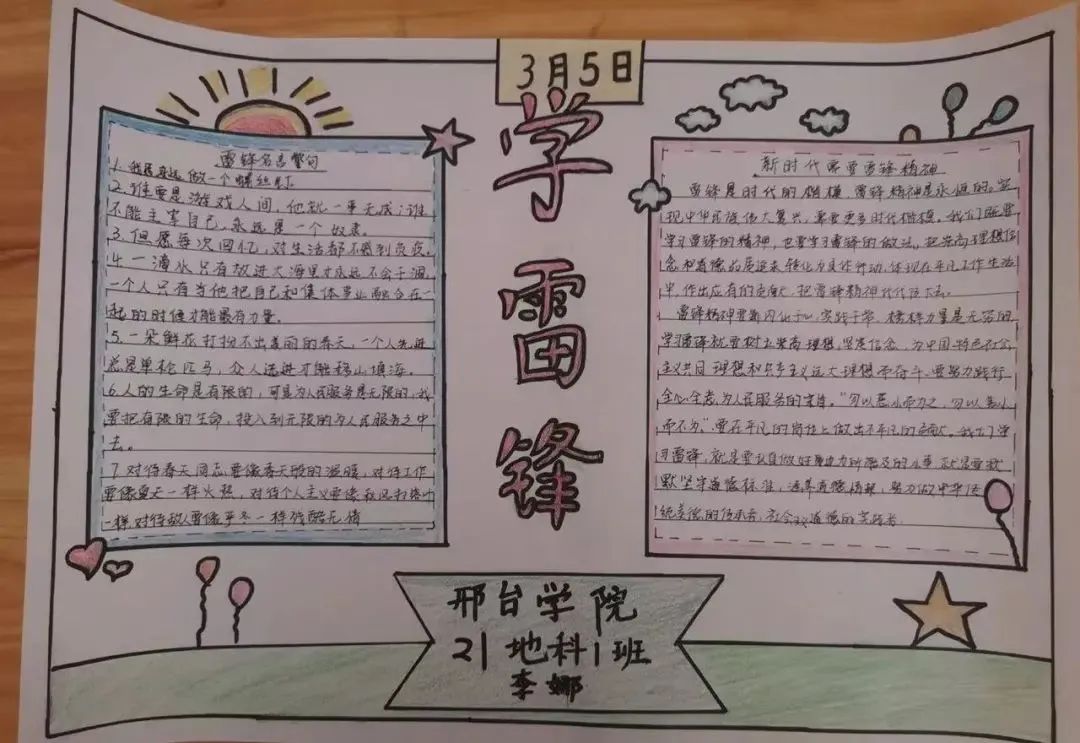 3月5日
学雷锋
雷锋名言警句
1.我愿永远做一个螺丝钉.
2.谁要是游戏人间,他就一事无成;谁
不能主宰自己,永远是一个奴隶。
3.但愿每次回忆,对生活都不感到负疚。
4.一滴水只有放进大海里才永远不会干涸,
一个人只有当他把自己和集体事业融合在一
起的时候才能最有力量。
5.一朵鲜花打扮不出美丽的春天,一个人先进
总是单枪匹马,众人先进才能移山填海。
6.人的生命是有限的,可是为人民服务是无限的,我
要把有限的生命,投入到无限的为人民服务之中
去。
7.对待春天同志要像春天般的温暖,对待工作
要像夏天一样火热,对待个人主义要像秋风扫落叶
一样对待敌人要像严冬一样残酷无情
新时代需要雷锋精神
雷锋是时代的楷模,雷锋精神是永恒的。实
现中华民族伟大复兴,需要更多时代楷模。我们既要
学习雷锋的精神,也要学习雷锋的做法,把崇高理想信
念和道德品质追求转化为具体行动,体现在平凡工作生活
中,作出应有的贡献,把雷锋精神代代传下去。
雷锋精神要新内化于心,实践于常,榜样力量是无穷的
学习雷锋就要树立崇高理想,坚定信念,为中国特色社会
主义共同理想和共产主义远大理想而奋斗,要努力践行
全心全意为人民服务的宗旨。"勿以恶小而为之,勿以善小
而不为。"要在平凡的岗位上做出不平凡的贡献。我们学
习雷锋,就是要认真做好力所能及的小事 就是要默
默坚守道德标准,涵养道德情操,努力做中华传
统美德的传承者,社会主义道德的实践者.
邢台学院
21地科1班
李娜